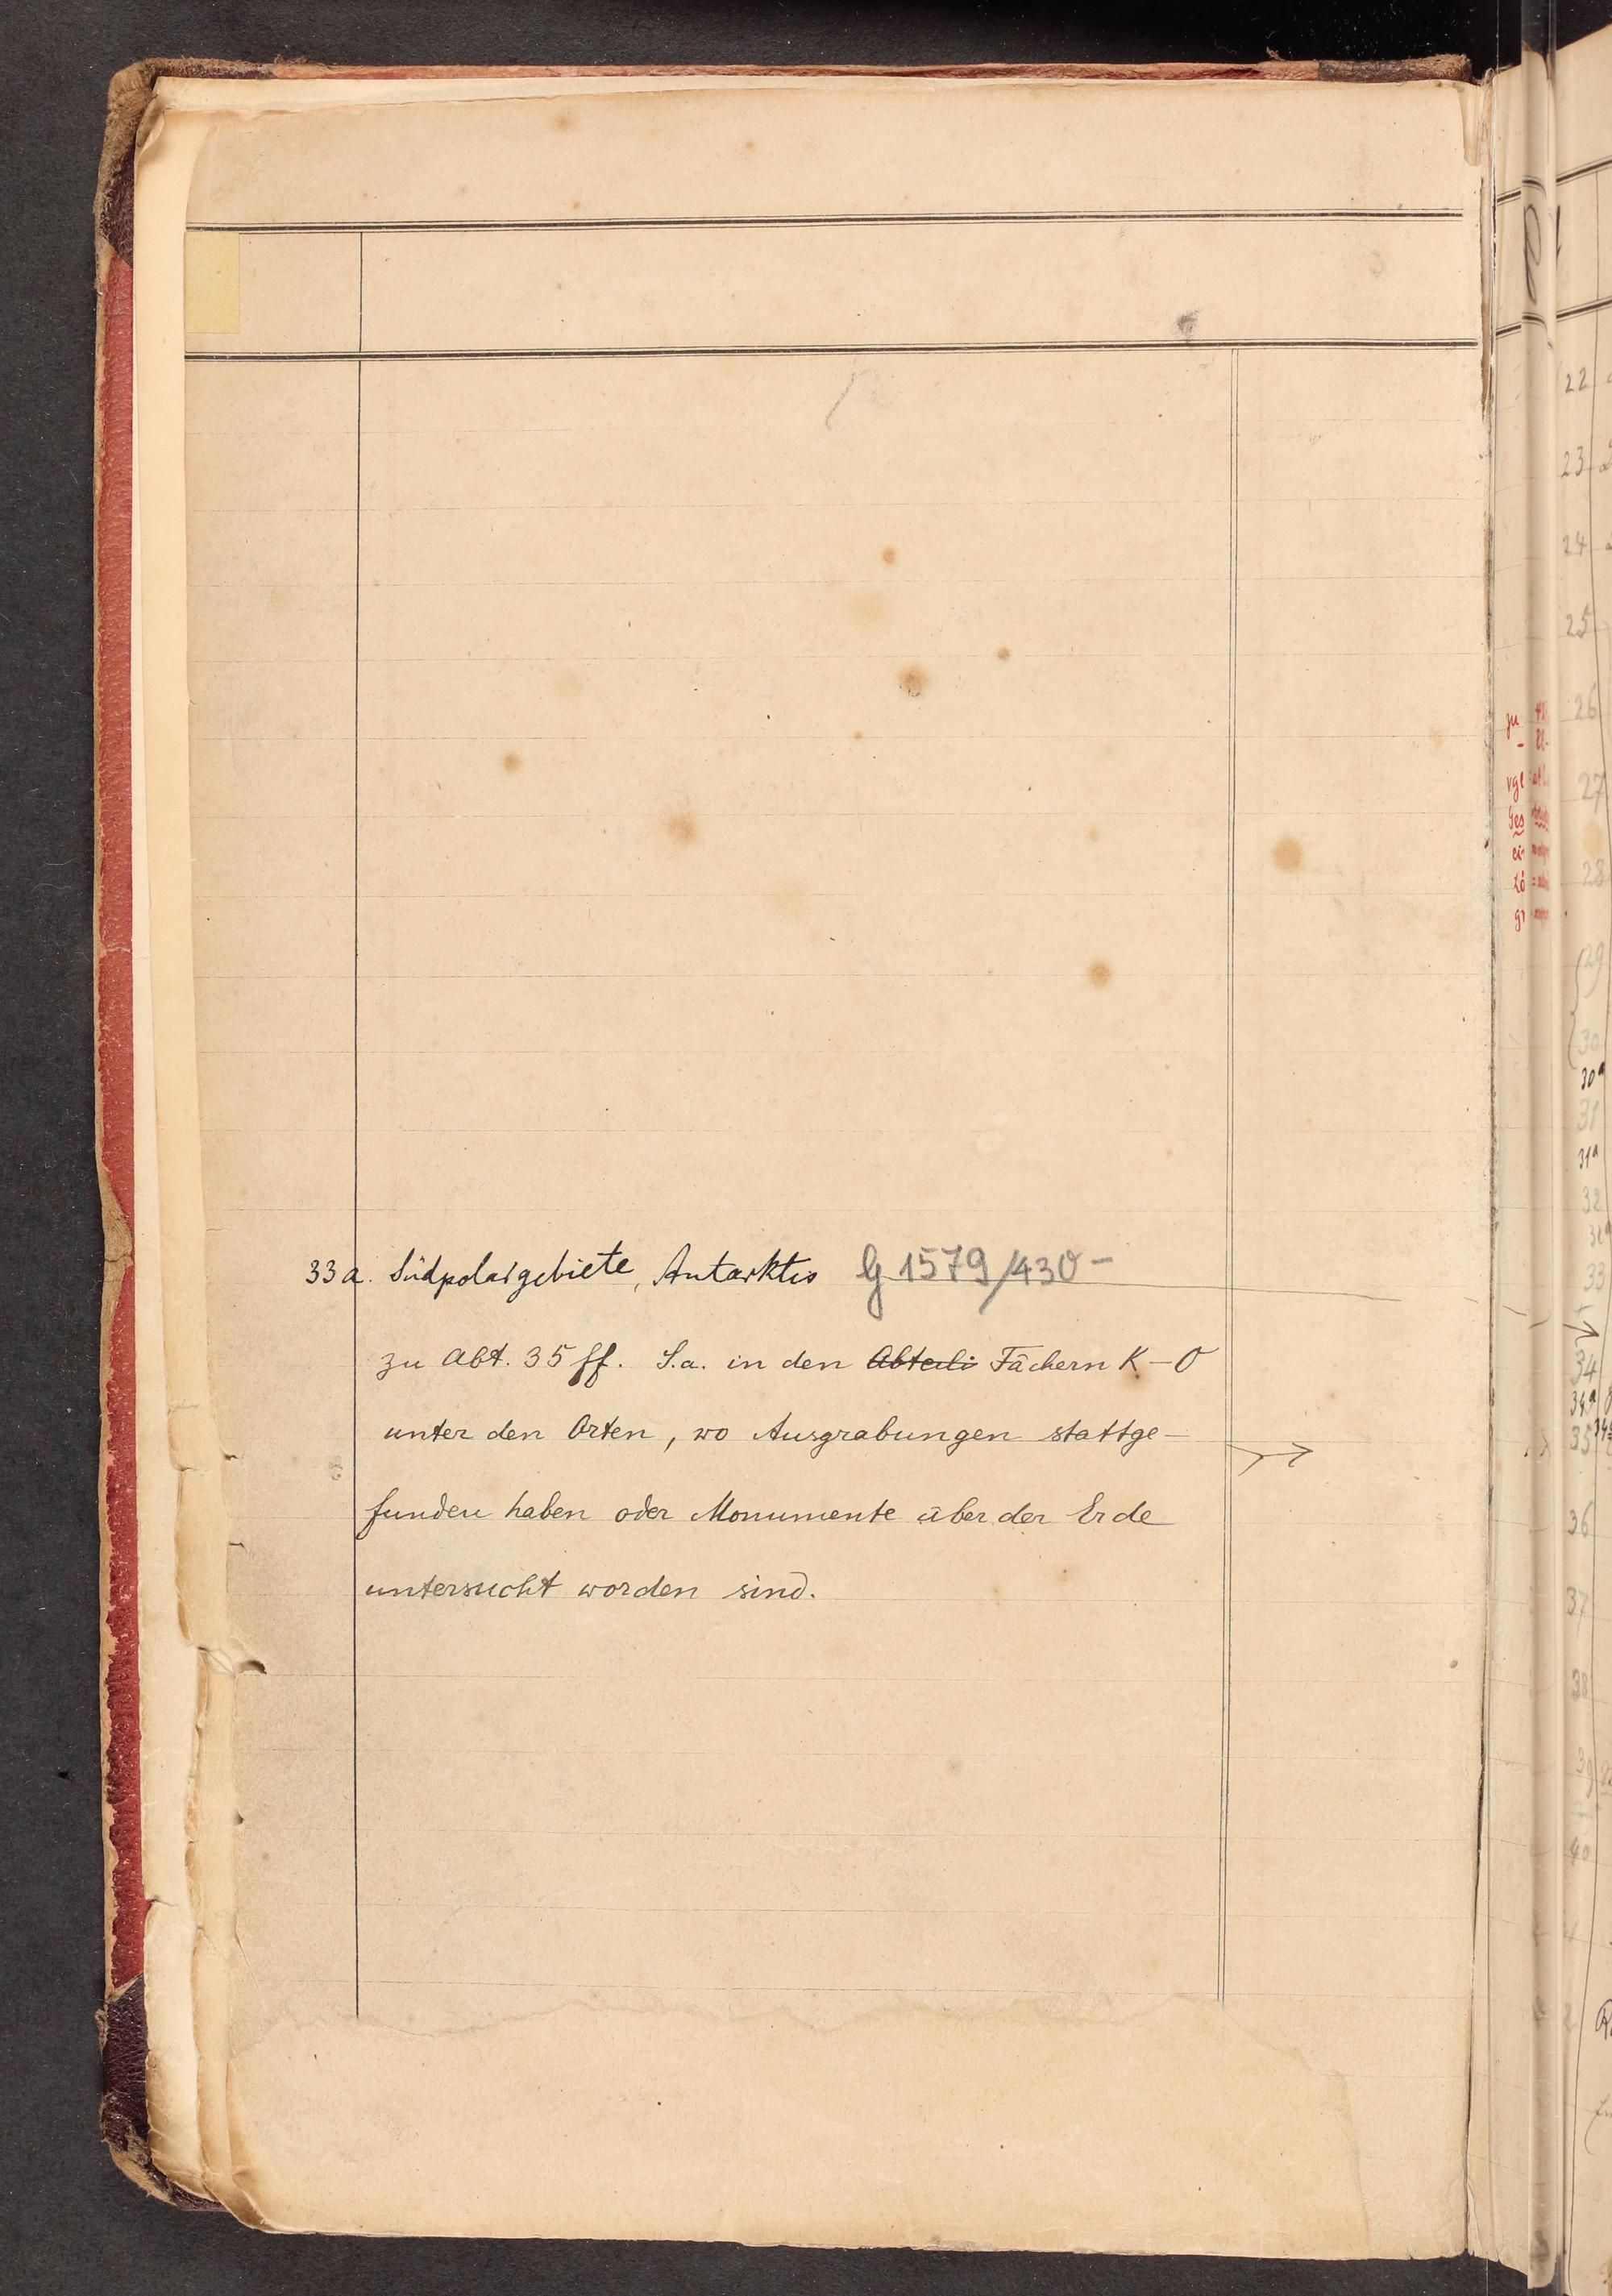 33a. Südpolargebiete, Antarktis G 1579/430–
zu Abt. 35 ff. S.a. in den Abteili Fächern K – O
unter den Orten, wo Ausgrabungen stattge-
funden haben oder Monumente über der Erde
untersucht worden sind.
22
23
24
25
26
27
28
29
30
30a
31
31a
32
33
34
34a
35
36
37
38
39
40
zu
vgl